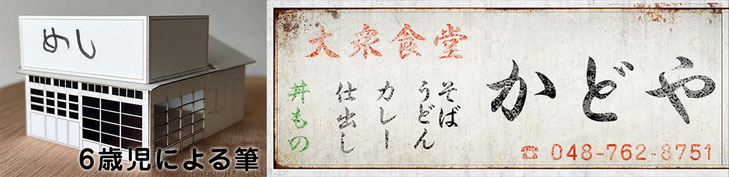 めし
6歳児による筆
大衆食堂
かどや
そば
うどん
カレー
仕出し
丼もの
☎ 048-762-8751